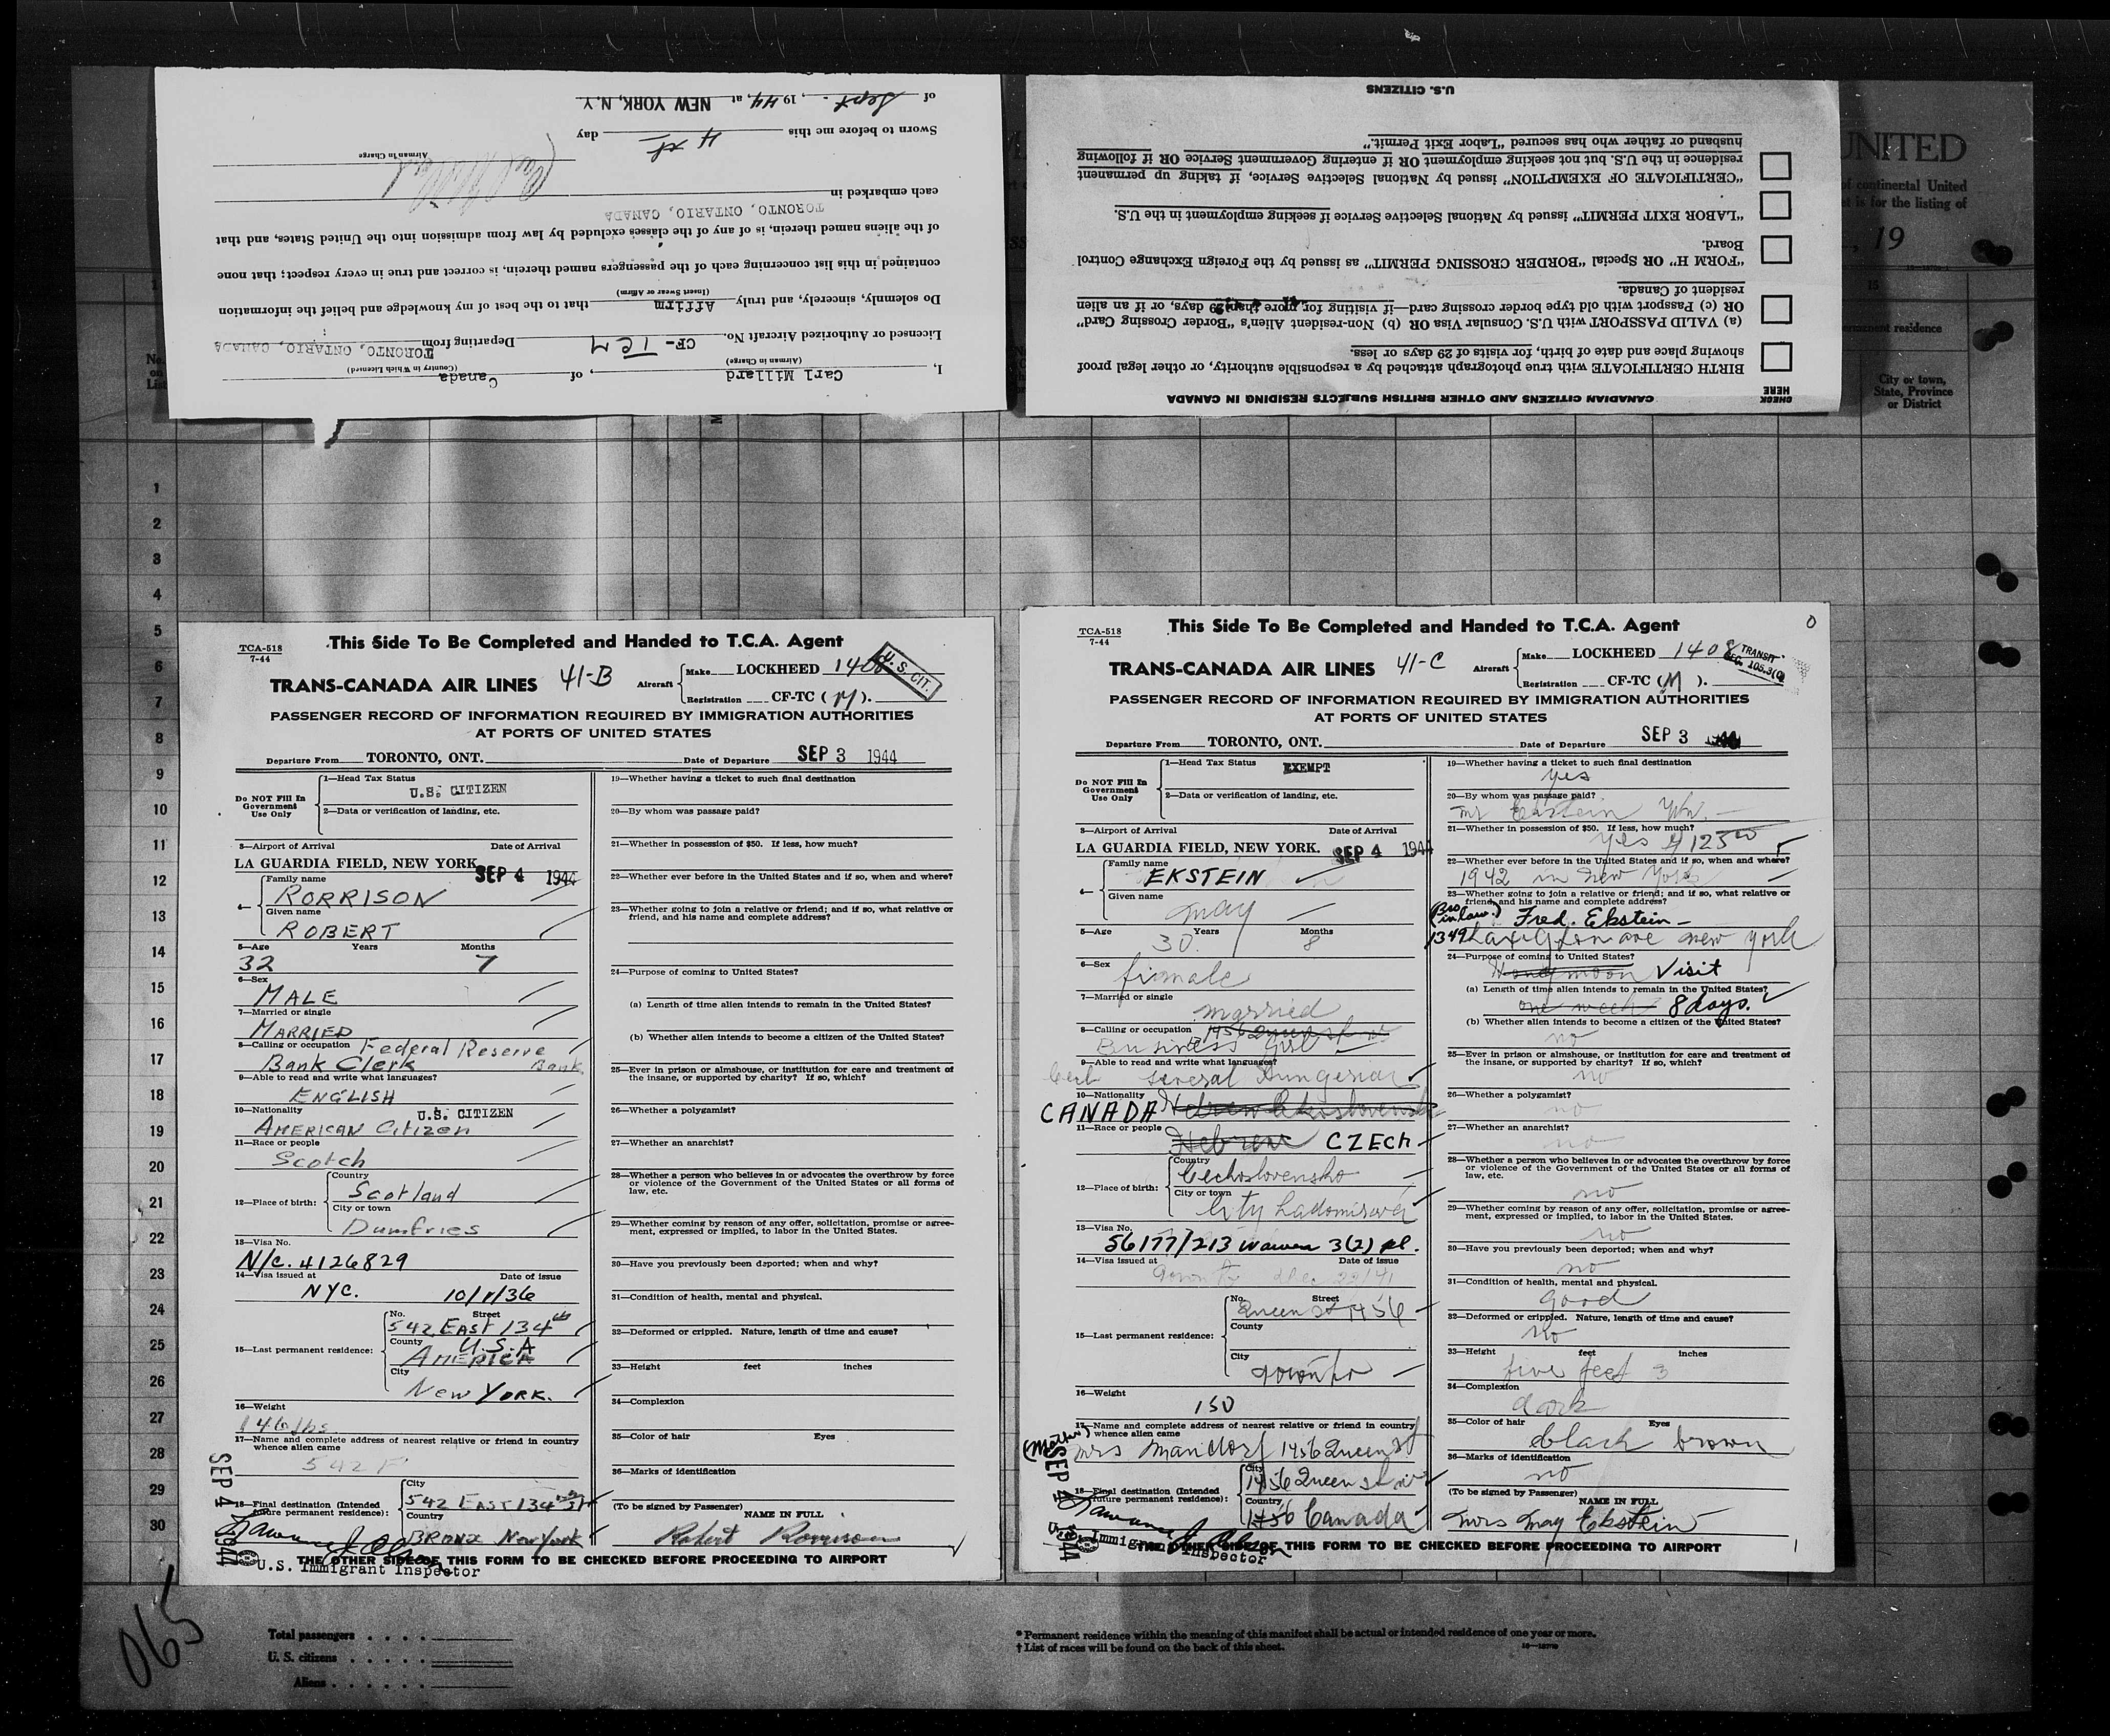 of Sept. , 1944, at NEW YORK, N.Y.
Sworn to before me this 4th day
Airman in Charge
each embarked in
TORONTO, ONTARIO, CANADA
of the aliens named therein, is of any of the classes excluded by law from admission into the United States, and that
contained in this list concerning each of the passengers named therein, is correct and true in every respect; that none
(Insert Swear or Affirm)
Do solemnly, sincerely, and truly Affirm that to the best of my knowledge and belief the information
Licensed or Authorized Aircraft No. CF-TCM Departing from TORONTO, ONTARIO, CANADA
(Airman in Charge) (Country in Which Licensed)
I, Carl Millard , of Canada
U.S. CITIZENS
husband or father who has secured "Labor Exit Permit."
residence in the U.S. but not seeking employment OR if entering Government Service OR if following
"CERTIFICATE OF EXEMPTION" issued by National Selective Service, if taking up permanent
"LABOR EXIT PERMIT" issued by National Selective Service if seeking employment in the U.S.
Board.
"FORM H" OR Special "BORDER CROSSING PERMIT" as issued by the Foreign Exchange Control
resident of Canada.
OR (c) Passport with old type border crossing card—if visiting for more than 29 days, or if an alien
(a) VALID PASSPORT with U.S. Consular Visa OR (b) Non-resident Alien's "Border Crossing Card"
showing place and date of birth, for visits of 29 days or less.
BIRTH CERTIFICATE with true photograph attached by a responsible authority, or other legal proof
CHECK HERE
CANADIAN CITIZENS AND OTHER BRITISH SUBJECTS RESIDING IN CANADA
UNITED
of continental United
is for the listing of
, 19
15
permanent residence
City or town,
State, Province
or District
No.
on
List
1
2
3
4
5
6
7
8
9
10
11
12
13
14
15
16
17
18
19
20
21
22
23
24
25
26
27
28
29
30
This Side To Be Completed and Handed to T.C.A. Agent
TCA-518
7-44
TRANS-CANADA AIR LINES 41-B
Aircraft Make LOCKHEED 1408
Registration CF-TC (M).
U.S. CIT.
PASSENGER RECORD OF INFORMATION REQUIRED BY IMMIGRATION AUTHORITIES
AT PORTS OF UNITED STATES
Departure From TORONTO, ONT. Date of Departure SEP 3 1944
Do NOT Fill In
Government
Use Only
1—Head Tax Status
U.S. CITIZEN
2—Data or verification of landing, etc.
3—Airport of Arrival Date of Arrival
LA GUARDIA FIELD, NEW YORK SEP 4 1944
4— Family name
RORRISON
Given name
ROBERT
5—Age Years Months
32 7
6—Sex
MALE
7—Married or single
MARRIED
8—Calling or occupation Federal Reserve
Bank Clerk Bank
9—Able to read and write what languages?
ENGLISH
10—Nationality U.S. CITIZEN
AMERICAN Citizen
11—Race or people
Scotch
12—Place of birth: Country
Scotland
City or town
Dumfries
13—Visa No.
N/C. 4126829
14—Visa issued at Date of issue
NYC. 10/1/36
15—Last permanent residence: No. Street
542 EAST 134th
County U.S.A
AMERICA
City
New YORK.
16—Weight
146 lbs.
17—Name and complete address of nearest relative or friend in country
whence alien came
542 F
18—Final destination (Intended
future permanent residence):
City
542 EAST 134th St
Country
BRONX New York
SEP 4 1944
U.S. Immigrant Inspector
19—Whether having a ticket to such final destination
20—By whom was passage paid?
21—Whether in possession of $50. If less, how much?
22—Whether ever before in the United States and if so, when and where?
23—Whether going to join a relative or friend; and if so, what relative or
friend, and his name and complete address?
24—Purpose of coming to United States?
(a) Length of time alien intends to remain in the United States?
(b) Whether alien intends to become a citizen of the United States?
25—Ever in prison or almshouse, or institution for care and treatment of
the insane, or supported by charity? If so, which?
26—Whether a polygamist?
27—Whether an anarchist?
28—Whether a person who believes in or advocates the overthrow by force
or violence of the Government of the United States or all forms of
law, etc.
29—Whether coming by reason of any offer, solicitation, promise or agree-
ment, expressed or implied, to labor in the United States.
30—Have you previously been deported; when and why?
31—Condition of health, mental and physical.
32—Deformed or crippled. Nature, length of time and cause?
33—Height feet inches
34—Complexion
35—Color of hair Eyes
36—Marks of identification
(To be signed by Passenger) NAME IN FULL
Robert Rorrison
THE OTHER SIDE OF THIS FORM TO BE CHECKED BEFORE PROCEEDING TO AIRPORT
This Side To Be Completed and Handed to T.C.A. Agent
0
TCA-518
7-44
TRANS-CANADA AIR LINES 41-C
Aircraft Make LOCKHEED 1408
Registration CF-TC (M).
TRANSIT
SEC. 105.3(
PASSENGER RECORD OF INFORMATION REQUIRED BY IMMIGRATION AUTHORITIES
AT PORTS OF UNITED STATES
Departure From TORONTO, ONT. Date of Departure SEP 3
Do NOT Fill In
Government
Use Only
1—Head Tax Status EXEMPT
2—Data or verification of landing, etc.
3—Airport of Arrival Date of Arrival
LA GUARDIA FIELD, NEW YORK. SEP 4 1944
4— Family name
EKSTEIN
Given name
May
5—Age Years Months
30 8
6—Sex
fimale
7—Married or single
married
8—Calling or occupation 1456 Queen st w
Business Girl
9—Able to read and write what languages?
Cech several Hungerian
10—Nationality
CANADA
11—Race or people
Hebrew CZECH
12—Place of birth: Country
Cechoslovensko
City or town
City Ladomirova
13—Visa No.
56177/213 waiver 3(2) pl.
14—Visa issued at Date of issue
Toronto dec 22/41
15—Last permanent residence: No. Street
Queen St 1456
County
City
Toronto
16—Weight
150
17—Name and complete address of nearest relative or friend in country
whence alien came
(Mother) Mrs Mandorf 1456 Queen St
18—Final destination (Intended
future permanent residence):
City
1456 Queen st w
Country
1456 Canada
SEP 4 1944
U.S. Immigrant Inspector
19—Whether having a ticket to such final destination
yes
20—By whom was passage paid?
Mr Ekstein
21—Whether in possession of $50. If less, how much?
yes $125.00
22—Whether ever before in the United States and if so, when and where?
1942 in New York
23—Whether going to join a relative or friend; and if so, what relative or
friend, and his name and complete address?
(Bro in law.) Fred. Ekstein
1349 Lexington ave new york
24—Purpose of coming to United States?
Honeymoon Visit
(a) Length of time alien intends to remain in the United States?
one week 8 days.
(b) Whether alien intends to become a citizen of the United States?
no
25—Ever in prison or almshouse, or institution for care and treatment of
the insane, or supported by charity? If so, which?
no
26—Whether a polygamist?
no
27—Whether an anarchist?
no
28—Whether a person who believes in or advocates the overthrow by force
or violence of the Government of the United States or all forms of
law, etc.
no
29—Whether coming by reason of any offer, solicitation, promise or agree-
ment, expressed or implied, to labor in the United States.
no
30—Have you previously been deported; when and why?
no
31—Condition of health, mental and physical.
good
32—Deformed or crippled. Nature, length of time and cause?
no
33—Height feet inches
five feet 3
34—Complexion
dark
35—Color of hair Eyes
black brown
36—Marks of identification
no
(To be signed by Passenger) NAME IN FULL
Mrs May Ekstein
THE OTHER SIDE OF THIS FORM TO BE CHECKED BEFORE PROCEEDING TO AIRPORT
065
Total passengers
U. S. citizens
Aliens
* Permanent residence within the meaning of this manifest shall be actual or intended residence of one year or more.
† List of races will be found on the back of this sheet.